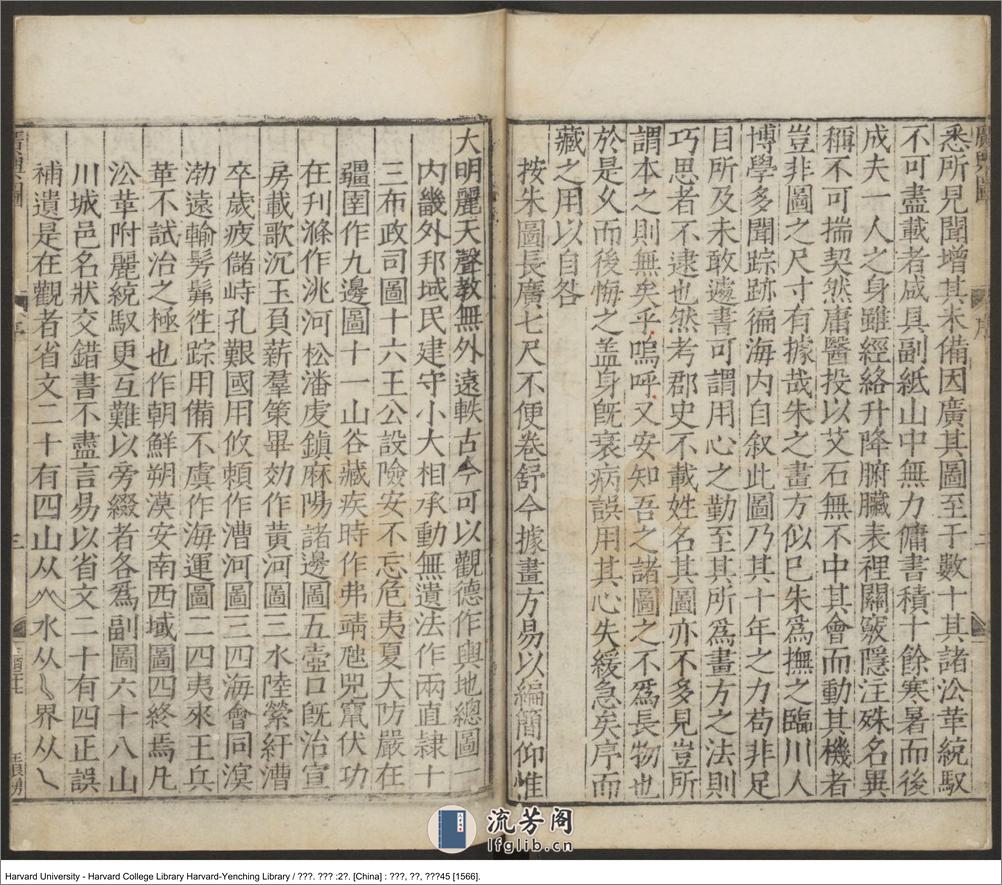 悉所見聞增其未備因廣其圖至于數十其諸沿革統馭
不可盡載者咸具副紙山中無力傭書積十餘寒暑而後
成夫一人之身雖經絡升降腑臟表裡關竅隱汪殊名異
稱不可揣契然庸醫投以艾石無不中其會而動其機者
豈非圖之尺寸有據哉朱之畫方似已朱爲撫之臨川人
博學多聞踪跡徧海内自叙此圖乃其十年之力苟非足
目所及未敢遽書可謂用心之勤至其所爲畫方之法則
巧思者不逮也然考郡史不載姓名其圖亦不多見豈所
謂本之則無矣乎嗚呼又安知吾之諸圖之不爲長物也
於是乂而後悔之盖身旣衰病誤用其心失緩急矣序而
藏之用以自咎
按朱圖長廣七尺不便卷舒今據畫方易以編簡仰惟
大明麗天聲教無外遠軼古今可以觀德作輿地總圖一
内畿外邦域民建守小大相承動無遺法作兩直隷十
三布政司圖十六王公設險安不忘危夷夏大防嚴在
疆圉作九邊圖十一山谷藏疾時作弗靖虺兕竄伏功
在刋滌作洮河松潘虔鎮麻陽諸邊圖五壺口旣治宣
房載歌沉玉負薪羣策畢効作黄河圖三水陸縈紆漕
卒歲疲儲峙孔艱國用攸頼作漕河圖三四海會同溟
渤遠輸髣髴徃踪用備不虞作海運圖二四夷來王兵
華不試治之極也作朝鮮朔漠安南西域圖四終焉凡
沿革附麗統馭更互難以旁綴者各爲副圖六十八山
川城邑名狀交錯書不盡言易以省文二十有四正誤
補遺是在觀者省文二十有四山从 水从 界从
廣輿圖
序
二
三
流芳阁
lfglib.cn
Harvard University - Harvard College Library Harvard-Yenching Library / ???. ??? :2?. [China] : ???, ??, ???45 [1566].